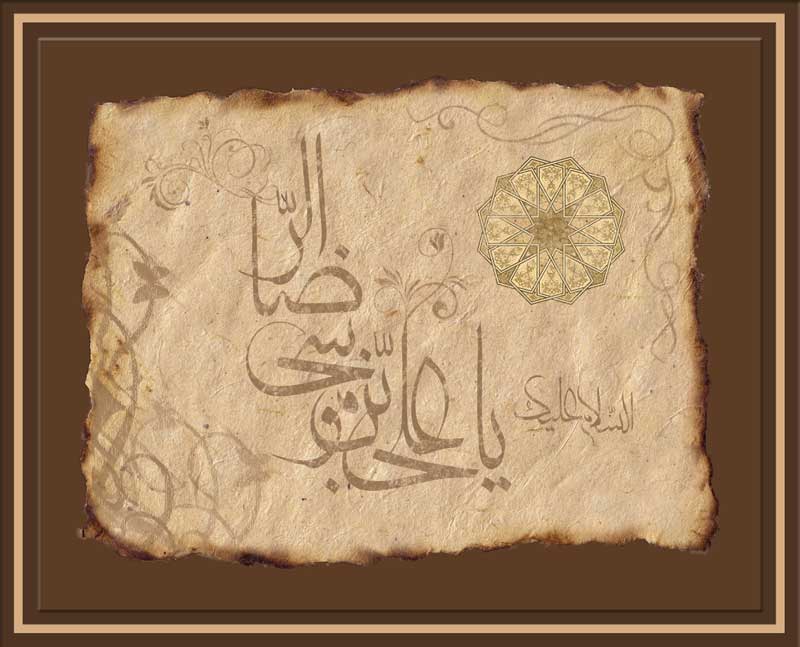 السلام علیک
یا علی بن موسی الرضا